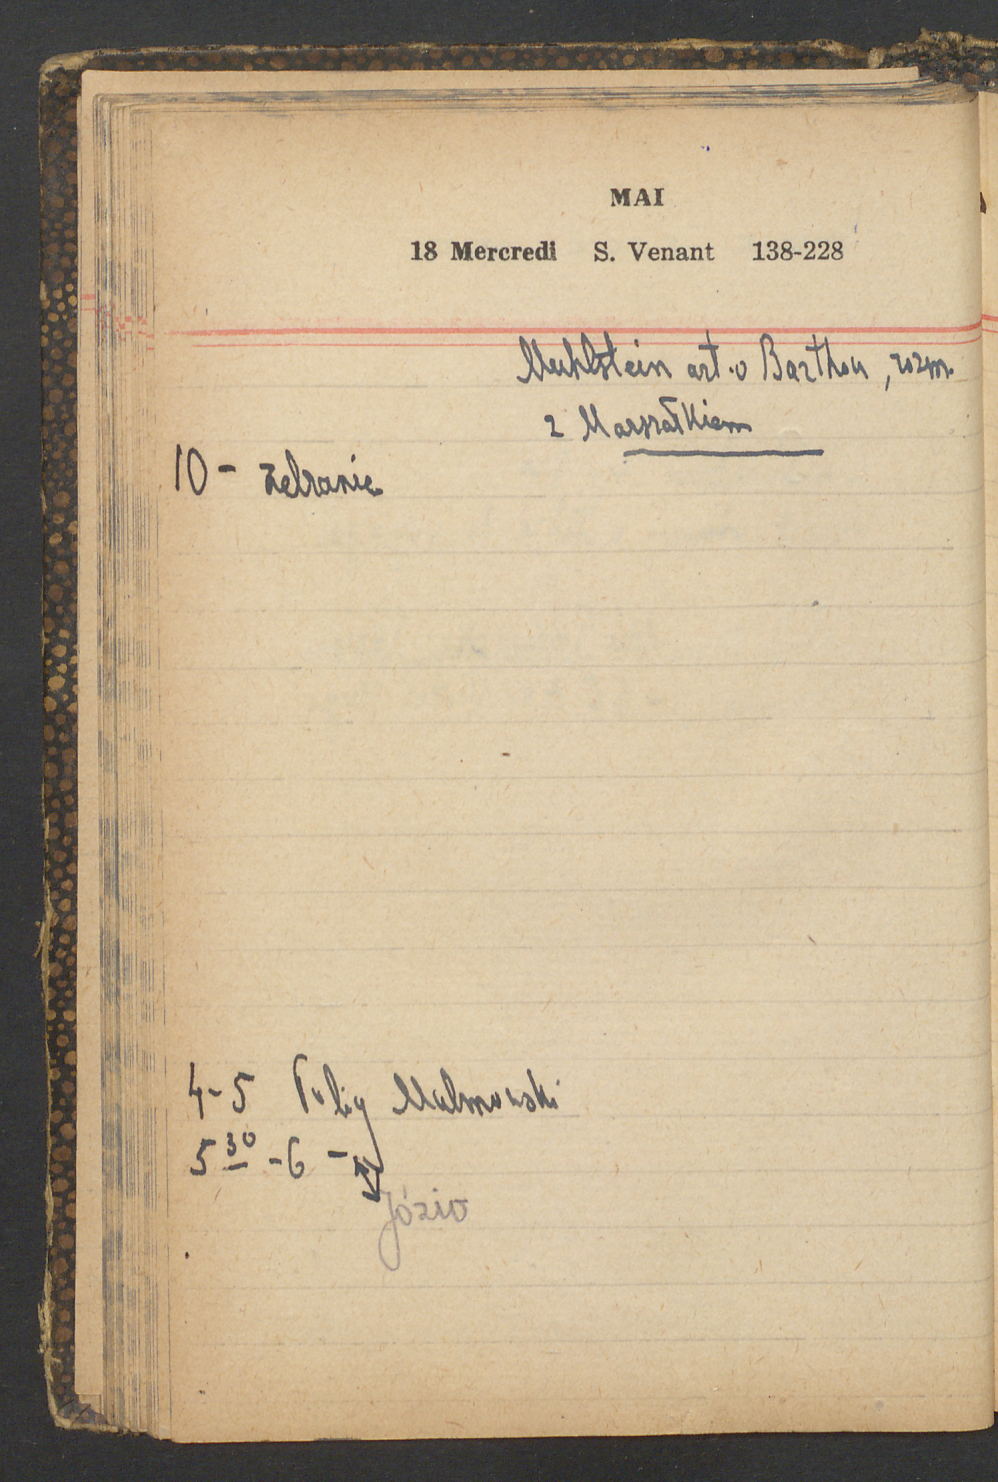 MAI
18 Mercredi S. Venant 138-228
Muhlstein art. o Barthou, rozm.
z Marszałkiem
10 - zebranie
4-5 Malmowski
5 30 - 6 -
Józio